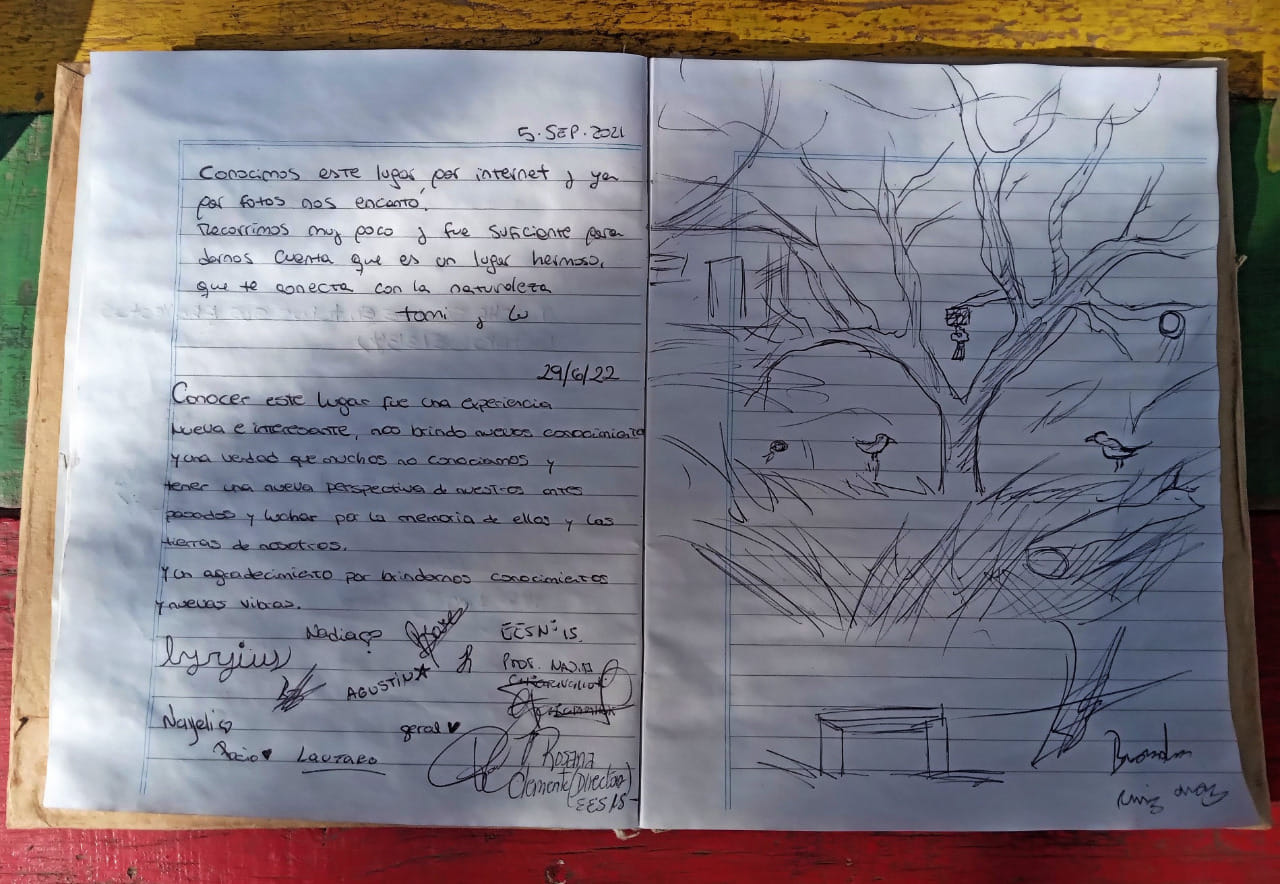 5. SEP. 2021
Conocimos este lugar, por internet y ya
por fotos nos encanto.
Recorrimos muy poco y fue suficiente para
darnos cuenta que es un lugar hermoso,
que te conecta con la naturaleza
tami y Lu
29/6/22
Conocer este lugar fue una experiencia
nueva e interesante, nos brindo nuevos conocimiento
y una verdad que muchos no conociamos y
tener una nueva perspectiva de nuestros antes
pasados y luchar por la memoria de ellos y las
tierras de nosotros.
Y un agradecimiento por brindarnos conocimientos
y nuevas vibras.
Nadia
EES N° 15.
Prof. NADIA
AGUSTIN
Nayeli
geral
Rocio LAUTARO
ROSANA
Clemente (Directora)
EES 15
Brandon
Ruiz